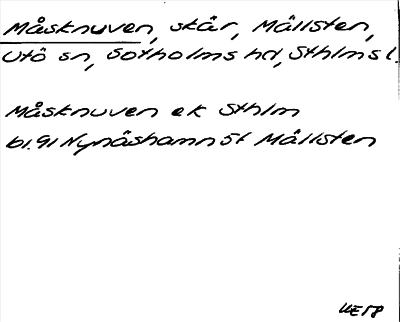 Måsknuven, skär, Mällsten,
Utö sn, Sotholms hd, Sthlms l.
Måsknuven ek Sthlm
bl. 91 Nynäshamn St Mällsten